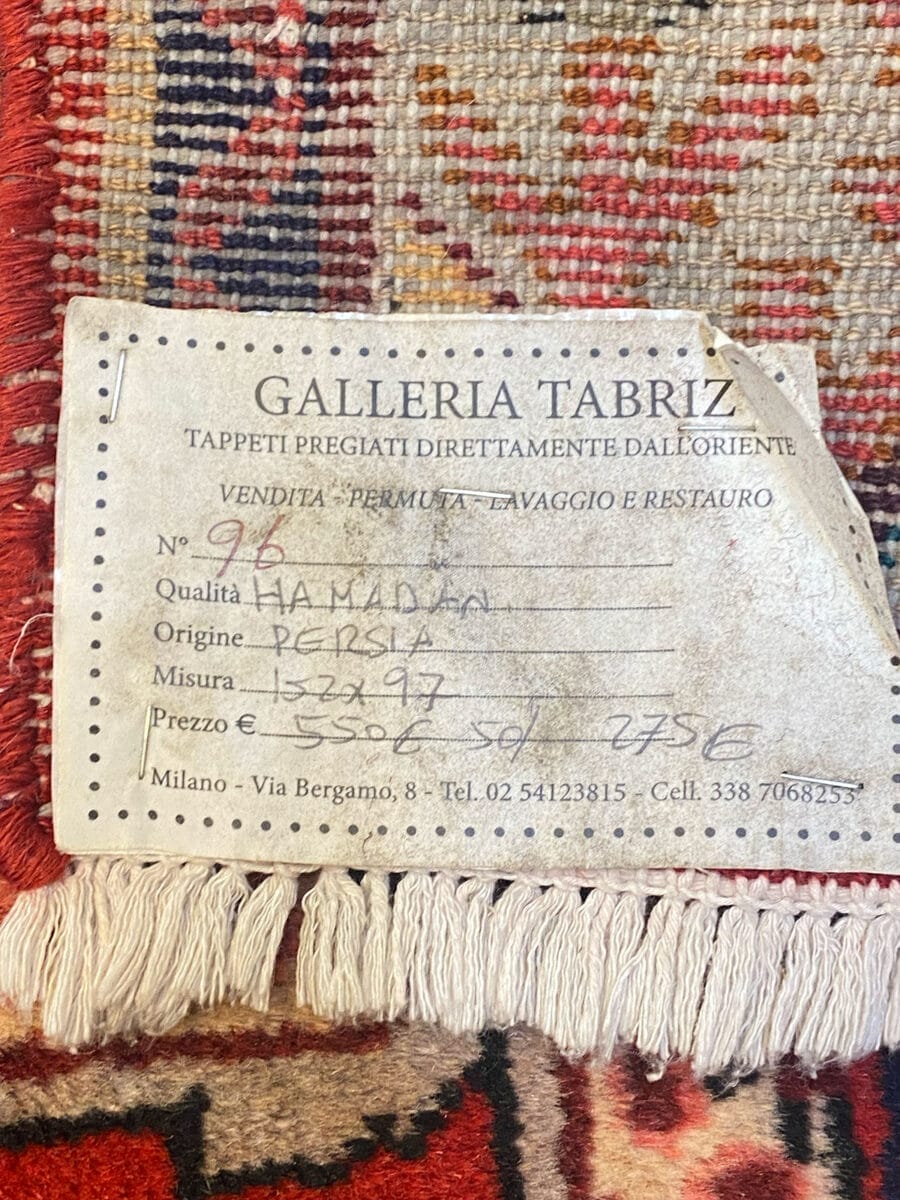 GALLERIA TABRIZ
TAPPETI PREGIATI DIRETTAMENTE DALL'ORIENTE
VENDITA - PERMUTA - LAVAGGIO E RESTAURO
N° 96
Qualità HAMADAN
Origine PERSIA
Misura 152x97
Prezzo € 550€ 50/ 275€
Milano - Via Bergamo, 8 - Tel. 02 54123815 - Cell. 338 7068253